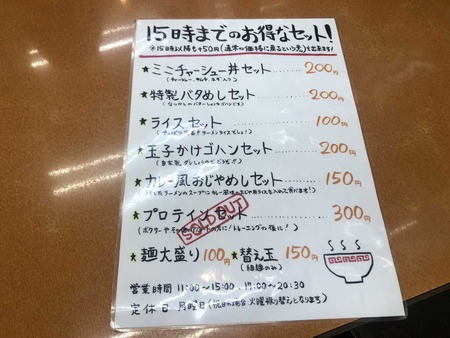 15時までのお得なセット!
※15時以降も+50円(通常の価格に戻るという意)で出来ます!
★ミニチャーシュー丼セット 200円
(チャーシュー、キムチ、ネギ入り)
★特製バタめしセット 200円
(なつかしのバターしょうゆゴハンです)
★ライスセット 100円
ラーメンライスでしょ!)
★玉子かけゴハンセット 200円
(自家製ダシしょうゆでどうぞ!!)
★カレー風おじやめしセット 150円
ラーメンのスープにカレー風味
★プロテインセット 300円
SOLD OUT
トレーニング後に!)
★麺大盛り100円 ★替え玉 150円
(細麺のみ)
営業時間 11:00〜15:00、17:00〜20:30
定休日 月曜日(祝日の場合火曜振り替えとなります)